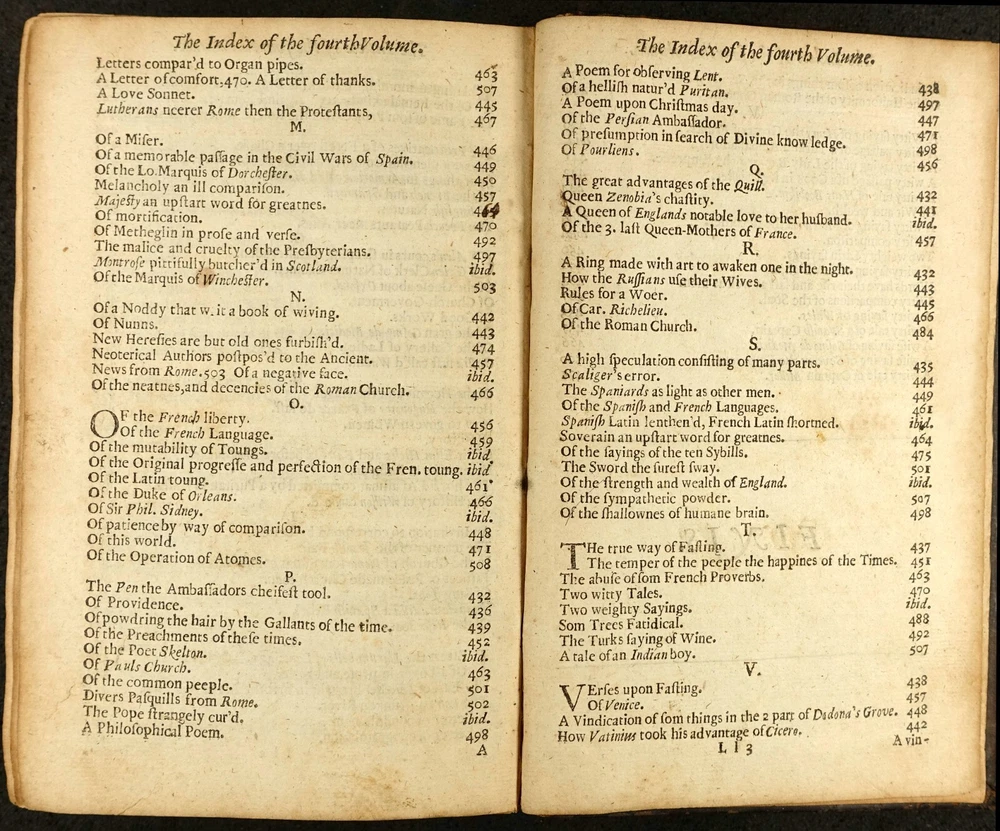 The Index of the fourth Volume.
Letters compar'd to Organ pipes. 463
A Letter of comfort,470. A Letter of thanks. 507
A Love Sonnet. 445
Lutherans neerer Rome then the Proteſtants, 467
M.
Of a Miſer. 446
Of a memorable paſſage in the Civil Wars of Spain. 449
Of the Lo.Marquis of Dorcheſter. 450
Melancholy an ill compariſon. 457
Majeſty an upſtart word for greatnes.
Of mortification. 470
Of Metheglin in proſe and verſe. 492
The malice and cruelty of the Preſbyterians. 497
Montroſe pittifully butcher'd in Scotland. ibid.
Of the Marquis of Wincheſter. 503
N.
Of a Noddy that writ a book of wiving. 442
Of Nunns. 443
New Hereſies are but old ones furbiſh'd. 474
Neoterical Authors poſtpos'd to the Ancient. 457
News from Rome.503 Of a negative face. ibid.
Of the neatnes,and decencies of the Roman Church. 466
O.
OF the French liberty. 456
Of the French Language. 459
Of the mutability of Toungs. ibid
Of the Original progreſſe and perfection of the Fren. toung. ibid
Of the Latin toung. 461
Of the Duke of Orleans. 466
Of Sir Phil. Sidney. ibid.
Of patience by way of compariſon. 448
Of this world. 471
Of the Operation of Atomes. 508
P.
The Pen the Ambaſſadors cheifeſt tool. 432
Of Providence. 436
Of powdring the hair by the Gallants of the time. 439
Of the Preachments of theſe times. 452
Of the Poet Skelton. ibid.
Of Pauls Church. 463
Of the common peeple. 501
Divers Paſquills from Rome. 502
The Pope ſtrangely cur'd. ibid.
A Philoſophical Poem. 498
A
The Index of the fourth Volume.
A Poem for obſerving Lent. 438
Of a helliſh natur'd Puritan. 497
A Poem upon Chriſtmas day. 447
Of the Perſian Ambaſſador. 471
Of preſumption in ſearch of Divine knowledge. 498
Of Pourliens. 456
Q.
The great advantages of the Quill. 432
Queen Zenobia's chaſtity. 441
A Queen of Englands notable love to her huſband. ibid.
Of the 3. laſt Queen-Mothers of France. 457
R.
A Ring made with art to awaken one in the night. 432
How the Ruſſians uſe their Wives. 443
Rules for a Woer. 445
Of Car. Richelieu. 466
Of the Roman Church. 484
S.
A high ſpeculation conſiſting of many parts. 435
Scaliger's error. 444
The Spaniards as light as other men. 449
Of the Spaniſh and French Languages. 461
Spaniſh Latin lenthen'd, French Latin ſhortned. ibid.
Soverain an upſtart word for greatnes. 464
Of the ſayings of the ten Sybills. 475
The Sword the ſureſt ſway. 501
Of the ſtrength and wealth of England. ibid.
Of the ſympathetic powder. 507
Of the ſhallownes of humane brain. 498
T.
THe true way of Faſting. 437
The temper of the peeple the happines of the Times. 451
The abuſe of ſom French Proverbs. 463
Two witty Tales. 470
Two weighty Sayings. ibid.
Som Trees Fatidical. 488
The Turks ſaying of Wine. 492
A tale of an Indian boy. 507
V.
VErſes upon Faſting. 438
Of Venice. 457
A Vindication of ſom things in the 2 part of Dodona's Grove. 448
How Vatinius took his advantage of Cicero. 442
L l 3 A vin-